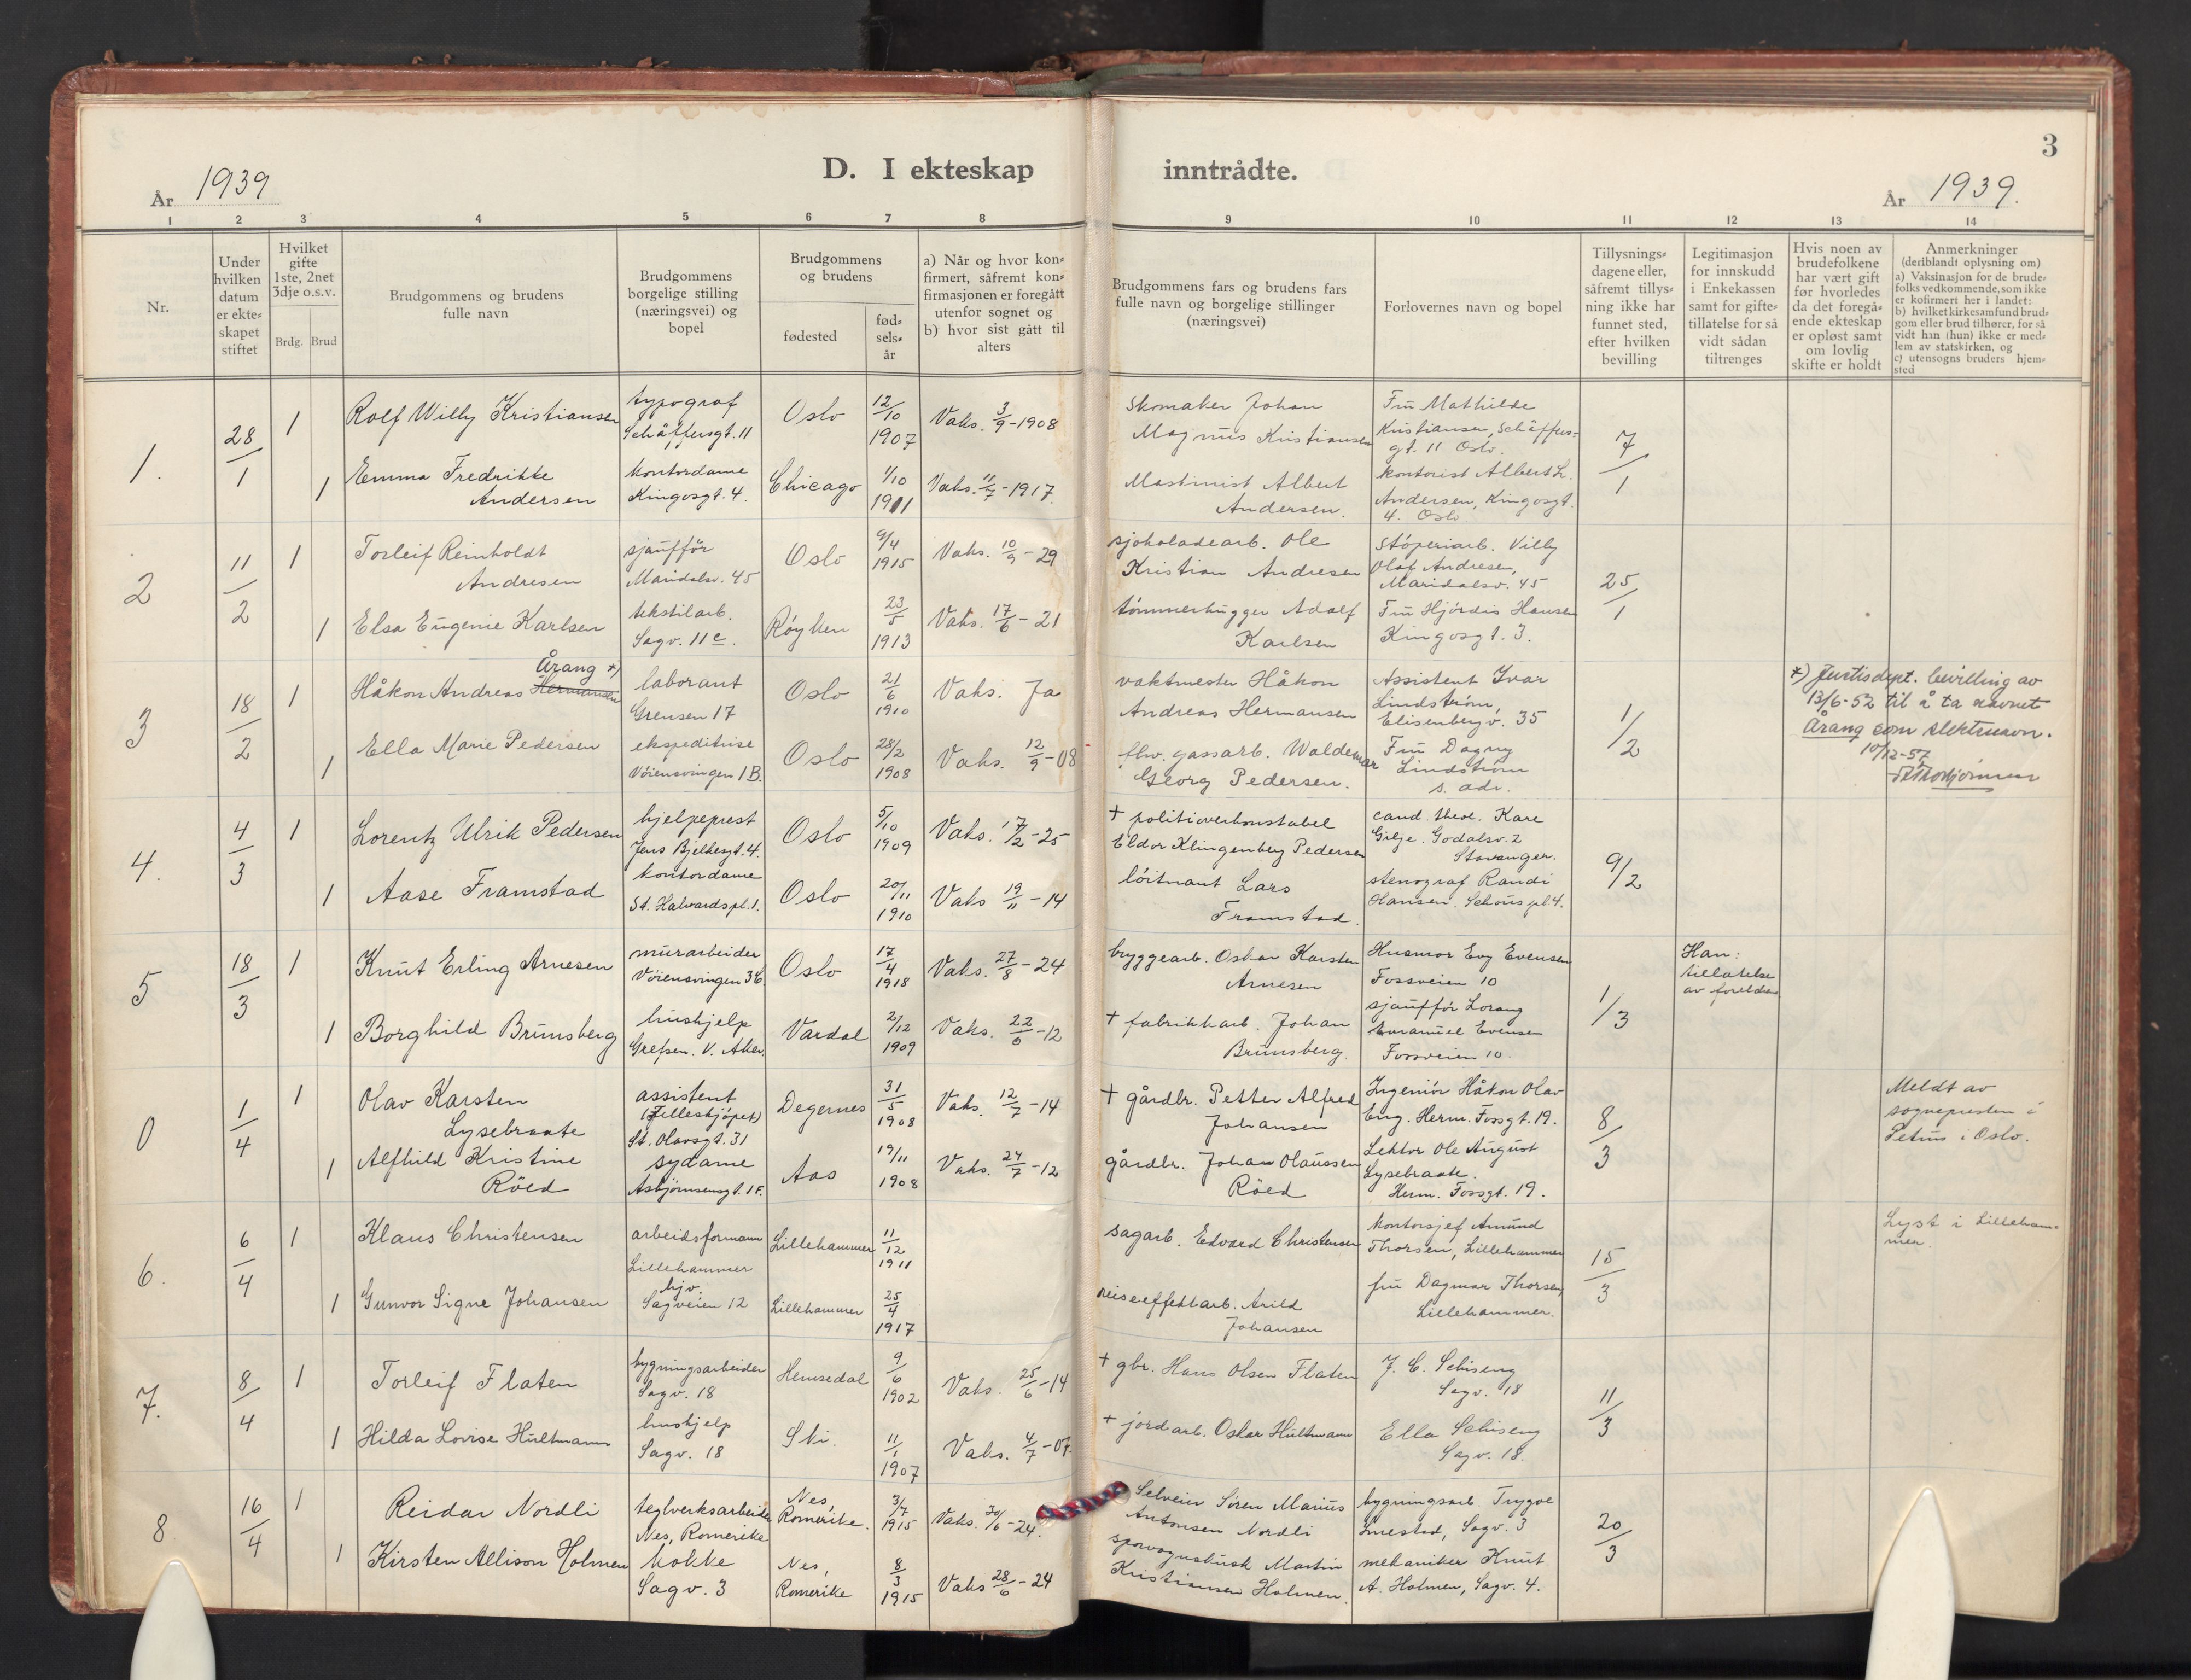 3
D. I ekteskap inntrådte.
År 1939
År 1939.
1 2 3 4 5 6 7 8 9 10 11 12 13 14
Nr.
Under
hvilken
datum
er ekte-
skapet
stiftet
Hvilket
gifte
1ste, 2net
3dje o.s.v.
Brdg. Brud
Brudgommens og brudens
fulle navn
Brudgommens
borgelige stilling
(næringsvei) og
bopel
Brudgommens
og brudens
fødested
fød-
sels-
år
a) Når og hvor kon-
firmert, såfremt kon-
firmasjonen er foregått
utenfor sognet og
b) hvor sist gått til
alters
Brudgommens fars og brudens fars
fulle navn og borgelige stillinger
(næringsvei)
Forlovernes navn og bopel
Tillysnings-
dagene eller,
såfremt tillys-
ning ikke har
funnet sted,
efter hvilken
bevilling
Legitimasjon
for innskudd
i Enkekassen
samt for gifte-
tillatelse for så
vidt sådan
tiltrenges
Hvis noen av
brudefolkene
har vært gift
før hvorledes
da det foregå-
ende ekteskap
er opløst samt
om lovlig
skifte er holdt
Anmerkninger
(deriblandt oplysning om)
a) Vaksinasjon for de brude-
folks vedkommende, som ikke
er kofirmert her i landet:
b) hvilket kirkesamfund brud-
gom eller brud tilhører, for så
vidt han (hun) ikke er med-
lem av statskirken, og
c) utensogns bruders hjem-
sted
1.
28/1
1
Rolf Willy Kristiansen
typograf
Schäffersgt. 11
Oslo
12/10
1907
Vaks. 3/9-1908
Skomaker Johan
Magnus Kristiansen
Fru Mathilde
Kristiansen, Schäffers-
gt. 11 Oslo.
7/1
1
Emma Fredrikke
Andersen
kontordame
Kingosgt. 4.
Chicago
1/10
1911
Vaks. 11/7-1917.
Maskinist Albert
Andersen.
kontorist Albert L.
Andersen, Kingosgt.
4. Oslo
2
11/2
1
Torleif Reinholdt
Andresen
sjauffør
Maridalsv. 45
Oslo
9/4
1915
Vaks. 10/9-29
sjokoladearb. Ole
Kristian Andresen
Støperiarb. Villy
Olaf Andresen,
Maridalsv. 45
25/1
1
Elsa Eugenie Karlsen
tekstilarb.
Sagv. 11 c.
Røyken
23/5
1913
Vaks. 17/6-21
tømmerhugger Adolf
Karlsen
Fru Hjørdis Hansen
Kingosgt. 3.
3
18/2
1
Årang *)
Håkon Andreas Hermansen
laborant
Grensen 17
Oslo
21/6
1910
Vaks. Ja
vaktmester Håkon
Andreas Hermansen
Assistent Ivar
Lindstrøm,
Elisenbergv. 35
1/2
*) Justisdept. bevilling av
13/6-52 til å ta navnet
Årang som slektsnavn.
10/12-52
1
Ella Marie Pedersen
ekspeditrise
Vøiensvingen 1 B.
Oslo
28/2
1908
Vaks. 12/9-08
fhv. gassarb. Waldemar
Georg Pedersen.
Fru Dagny
Lindstrøm
s. adr.
4.
4/3
1
Lorentz Ulrik Pedersen
hjelpeprest
Jens Bjelkesgt. 4.
Oslo
5/10
1909
Vaks. 17/2-25
+ politioverkonstabel
Eldor Klingenberg Pedersen
cand. theol. Kare
Gilje. Godalsv. 2
Stavanger.
9/2
1
Aase Framstad
kontordame
St. Halvardspl. 1.
Oslo
20/11
1910
Vaks 19/11-14
løitnant Lars
Framstad.
stenograf Randi
Hansen. Schous pl. 4.
5
18/3
1
Knut Erling Arnesen
murarbeider
Vøiensvingen 3 b.
Oslo
17/4
1918
Vaks. 27/8-24
bryggearb. Oskar Karsten
Arnesen
Husmor Evy Evensen
Fossveien 10
1/3
Han:
tillatelse
av foreldre
1
Borghild Brunsberg
hushjelp
Grefsen. V. Aker.
Vardal
2/12
1909
Vaks. 22/6-12
+ fabrikkarb. Johan
Brunsberg.
sjauffør Lorang
Emanuel Evensen
Fossveien 10.
0
1/4
1
Olav Karsten
Lysebraate
assistent
(Felleskjøpet)
St. Olavsgt. 31
Degernes
31/5
1908
Vaks. 12/7-14
+ gårdbr. Petter Alfred
Johansen
Ingeniør Håkon Olav
Eng. Herm. Fossgt. 19.
8/3
Meldt av
sognepresten i
Petrus i Oslo.
1
Alfhild Kristine
Röed
sydame
Asbjørnsensgt. 1 F.
Aas
19/11
1908
Vaks. 24/7-12
gårdbr. Johan Olaussen
Röed
Lektor Ole August
Lysebraate.
Herm. Fossgt. 19.
6.
6/4
1
Klaus Christensen
arbeidsformann
Lillehammer
Lillehammer
11/12
1911
sagarb. Edvard Christensen
kontorsjef Amund
Thorsen, Lillehammer
15/3
Lyst i Lilleham-
mer.
1
Gunvor Signe Johansen
hjv.
Sagveien 12
Lillehammer
25/4
1917
reiseeffektarb. Arild
Johansen
fru Dagmar Thorsen,
Lillehammer.
7.
8/4
1
Torleif Flaten
bygningsarbeider
Sagv. 18
Hemsedal
9/6
1902
Vaks. 25/6-14
+ gbr. Hans Olsen Flaten
J. C. Schiseng
Sagv. 18
11/3
1
Hilda Lovise Hultmann
hushjelp
Sagv. 18
Ski.
11/1
1907
Vaks. 4/7-07
+ jordarb. Oskar Hultmann
Ella Schiseng
Sagv. 18.
8
16/4
1
Reidar Nordli
teglverksarbeider
Nes, Romerike
Nes,
Romerike.
3/7
1915
Vaks. 30/6-24.
Selveier Søren Marius
Antonsen Nordli
bygningsarb. Trygve
Imestad, Sagv. 3
20/3
1
Kirsten Allison Holmen
kokke
Sagv. 3
Nes,
Romerike
8/3
1915
Vaks 28/6-24
sporvognskusk Martin
Kristiansen Holmen.
mekaniker Knut
A. Holmen, Sagv. 4.